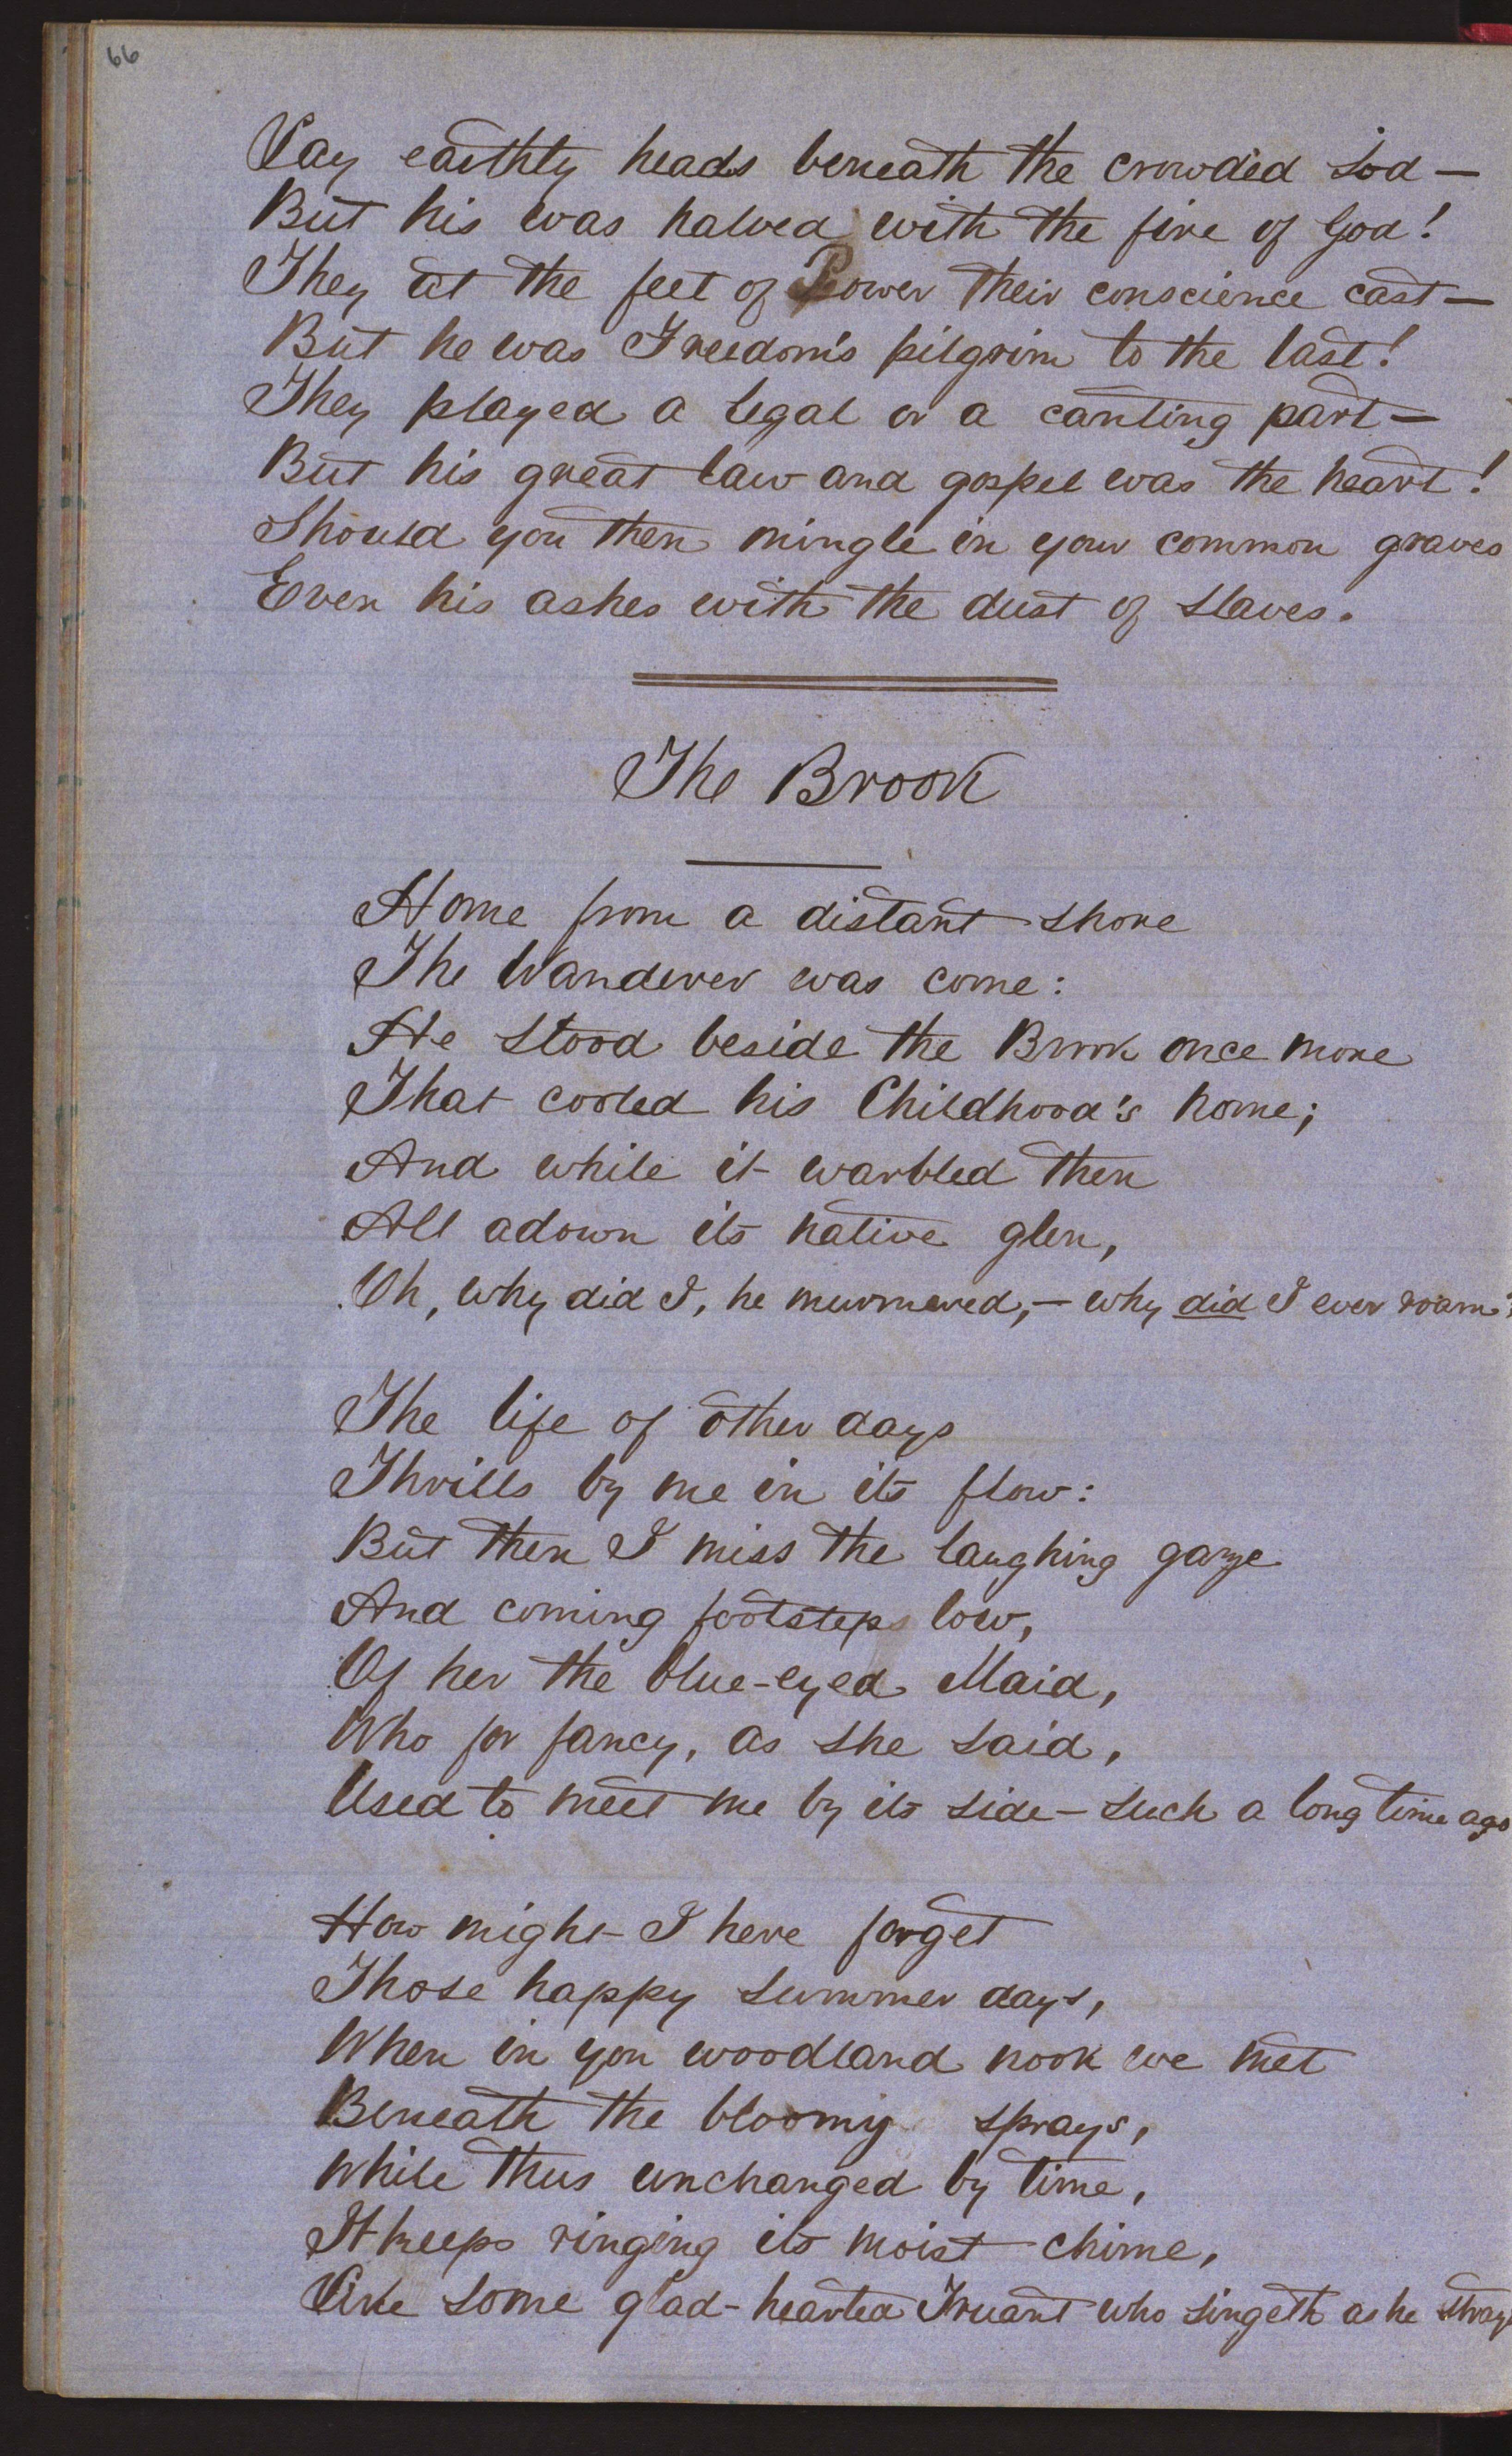 66
Lay earthly heads beneath the crowded sod —
But his was halved with the fire of God!
They at the feet of Power their conscience cast —
But he was Freedom's pilgrim to the last!
They played a legal or a canting part —
But his great law and gospel was the heart!
Should you then mingle in your common graves
Even his ashes with the dust of slaves.
The Brook
Home from a distant shore
The Wanderer was come:
He stood beside the Brook once more
That cooled his Childhood's home;
And while it warbled then
All adown its native glen,
Oh, why did I, he murmured, — why did I ever roam?
The life of other days
Thrills by me in its flow:
But then I miss the laughing gaze
And coming footsteps low,
Of her the blue-eyed Maid,
Who for fancy, as she said,
Used to meet me by its side — such a long time ago
How might I here forget
Those happy summer days,
When in yon woodland nook we met
Beneath the bloomy sprays,
While thus unchanged by time,
It keeps ringing its moist chime,
Like some glad-hearted Truant who singeth as he strays